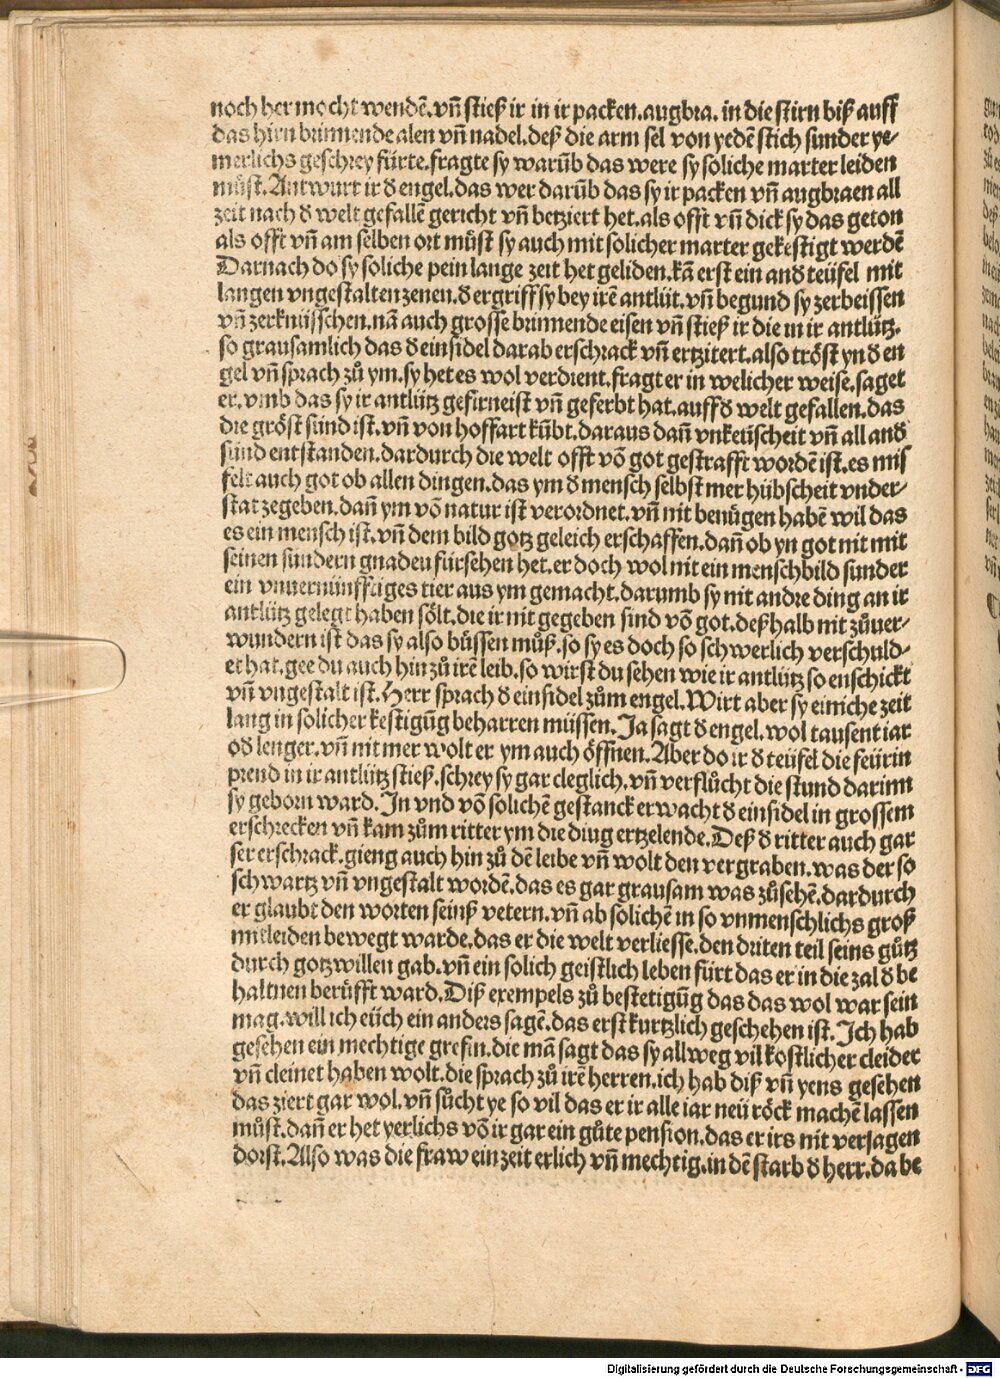 noch her mocht wendē. vn̄ stieß ir in ir packen. augbra. in die stirn biß auff
das hirn brinnende alen vn̄ nadel. deß die arm sel von yedē stich sunder ye⸗
merlichs geschrey fürte. fragte sy warūb das were sy soliche marter leiden
müst. Antwurt ir ð engel. das wer darūb das sy ir packen vn̄ augbraen all
zeit nach ð welt gefallē gericht vn̄ betziert het. als offt vn̄ dick sy das geton
als offt vn̄ am selben ort müst sy auch mit solicher marter gekestigt werdē
Darnach do sy soliche pein lange zeit het geliden. kā erst ein anð teüfel mit
langen vngestalten zenen. ð ergriff sy bey irē antlüt. vn̄ begund sy zerbeissen
vn̄ zerknüsschen. nā auch grosse brinnende eisen vn̄ stieß ir die in ir antlütz.
so grausamlich das ð einsidel darab erschrack vn̄ ertzitert. also tröst yn ð en
gel vn̄ sprach zů ym. sy het es wol verdient. fragt er in welicher weise. saget
er. vmb das sy ir antlütz gefirneist vn̄ geferbt hat. auff ð welt gefallen. das
die gröst sünd ist. vn̄ von hoffart kūbt. daraus dan̄ vnkeüscheit vn̄ all anð
sünd entstanden. dardurch die welt offt vō got gestrafft wordē ist. es mis
felt auch got ob allen dingen. das ym ð mensch selbst mer hübscheit vnder⸗
stat zegeben. dan̄ ym vō natur ist verordnet. vn̄ nit benügen habē wil das
es ein mensch ist. vn̄ dem bild gotz geleich erschaffen. dan̄ ob yn got nit mit
seinen sundern gnaden fürsehen het. er doch wol nit ein menschbild sunder
ein vnuernünfftiges tier aus ym gemacht. darumb sy nit andre ding an ir
antlütz gelegt haben sölt. die ir nit gegeben sind vō got. deßhalb nit zůuer⸗
wundern ist das sy also büssen můß. so sy es doch so schwerlich verschuld⸗
et hat. gee du auch hin zů irē leib. so wirst du sehen wie ir antlütz so enschickt
vn̄ vngestalt ist. Herr sprach ð einsidel zům engel. Wirt aber sy einiche zeit
lang in solicher kestigūg beharren müssen. Ja sagt ð engel. wol tausent iar
oð lenger. vn̄ nit mer wolt er ym auch öffnen. Aber do ir ð teüfel die feürin
prend in ir antlütz stieß. schrey sy gar cleglich. vn̄ verflůcht die stund darinn
sy geborn ward. In vnd vō solichē gestanck erwacht ð einsidel in grossem
erschrecken vn̄ kam zům ritter ym die ding ertzelende. Deß ð ritter auch gar
ser erschrack. gieng auch hin zů dē leibe vn̄ wolt den vergraben. was der so
schwartz vn̄ vngestalt wordē. das es gar grausam was zůsehē. dardurch
er glaubt den worten seinß vetern. vn̄ ab solichē in so vnmenschlichs groß
mitleiden bewegt warde. das er die welt verliesse. den driten teil seins gůtz
durch gotz willen gab. vn̄ ein solich geistlich leben fürt das er in die zal ð be
haltnen berüfft ward. Diß exempels zů bestetigūg das das wol war sein
mag. will ich eüch ein anders sagē. das erst kurtzlich geschehen ist. Ich hab
gesehen ein mechtige grefin. die mā sagt das sy allweg vil kostlicher cleider
vn̄ cleinet haben wolt. die sprach zů irē herren. ich hab diß vn̄ yens gesehen
das ziert gar wol. vn̄ sůcht ye so vil das er ir alle iar neü röck machē lassen
můst. dan̄ er het yerlichs vō ir gar ein gůte pension. das er irs nit versagen
dorst. Also was die fraw ein zeit erlich vn̄ mechtig. in dē starb ð herr. da be
Digitalisierung gefördert durch die Deutsche Forschungsgemeinschaft - DFG